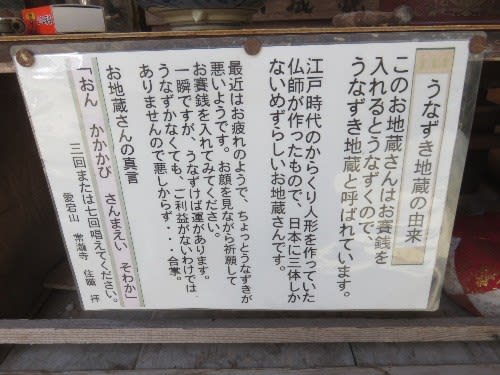 うなずき地蔵の由来
このお地蔵さんはお賽銭を
入れるとうなずくので、
うなずき地蔵と呼ばれています。
江戸時代のからくり人形を作っていた
仏師が作ったもので、日本に三体しか
ないめずらしいお地蔵さんです。
最近はお疲れのようで、ちょっとうなずきが
悪いようです。お顔を見ながら祈願して
お賽銭を入れてみてください。
一瞬ですが、うなずけば運があります。
うなずかなくても、ご利益がないわけでは
ありませんので悪しからず・・・合掌。
お地蔵さんの真言
「おん かかかび さんまえい そわか」
三回または七回唱えてください。
愛宕山 常瀧寺 住職 拝